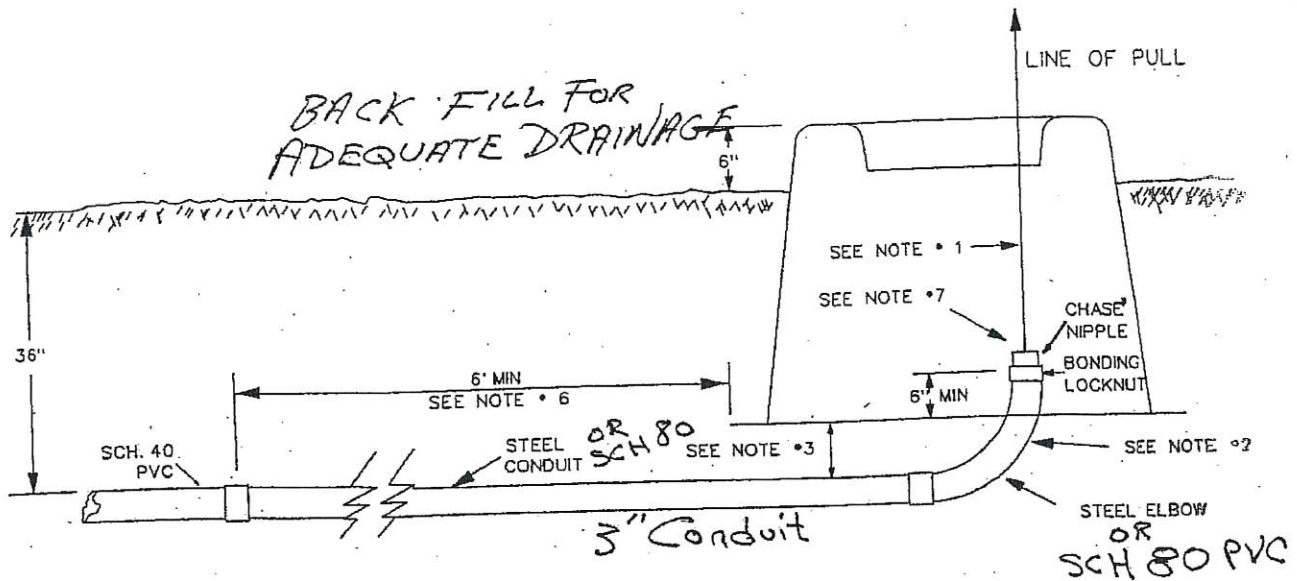 LINE OF PULL
BACK FILL FOR
ADEQUATE DRAINAGE
6"
SEE NOTE • 1
SEE NOTE •7
CHASE
NIPPLE
BONDING
LOCKNUT
36"
6' MIN
SEE NOTE • 6
6" MIN
SCH. 40
PVC
STEEL
CONDUIT
OR
SCH 80
SEE NOTE •3
SEE NOTE •2
3" Conduit
STEEL ELBOW
OR
SCH 80 PVC